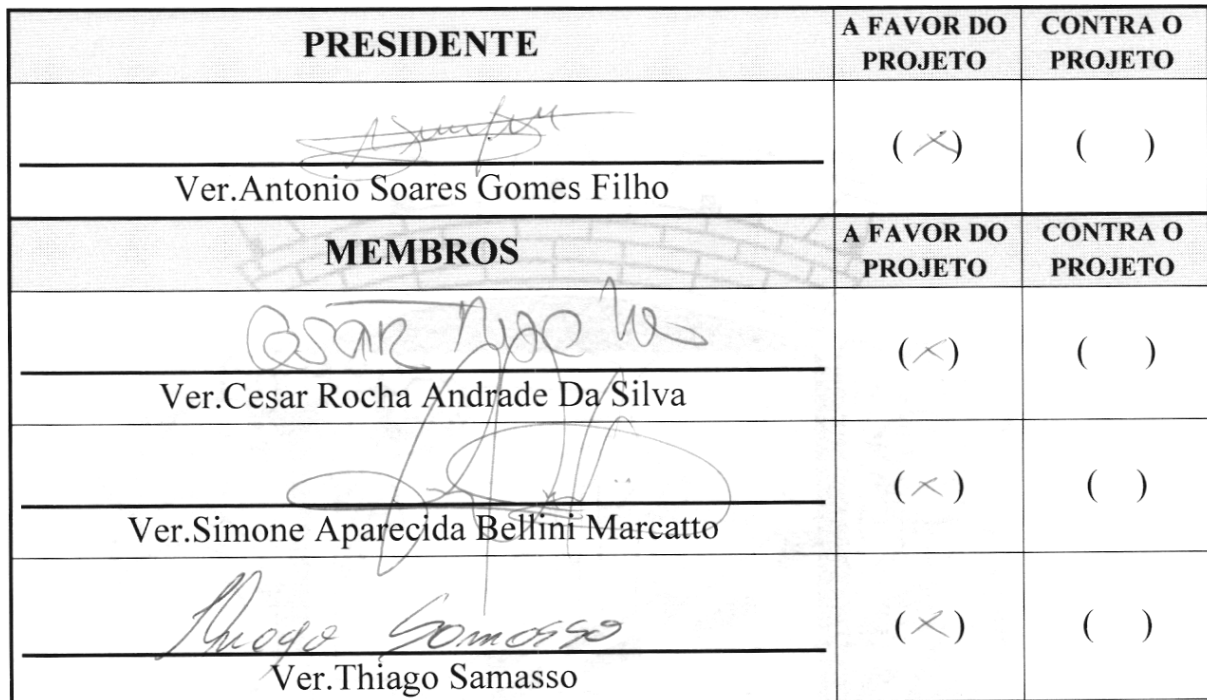 PRESIDENTE A FAVOR DO PROJETO CONTRA O PROJETO
( X ) ( )
Ver.Antonio Soares Gomes Filho
MEMBROS A FAVOR DO PROJETO CONTRA O PROJETO
Cesar
( X ) ( )
Ver.Cesar Rocha Andrade Da Silva
( X ) ( )
Ver.Simone Aparecida Bellini Marcatto
Thiago Samasso
( X ) ( )
Ver.Thiago Samasso